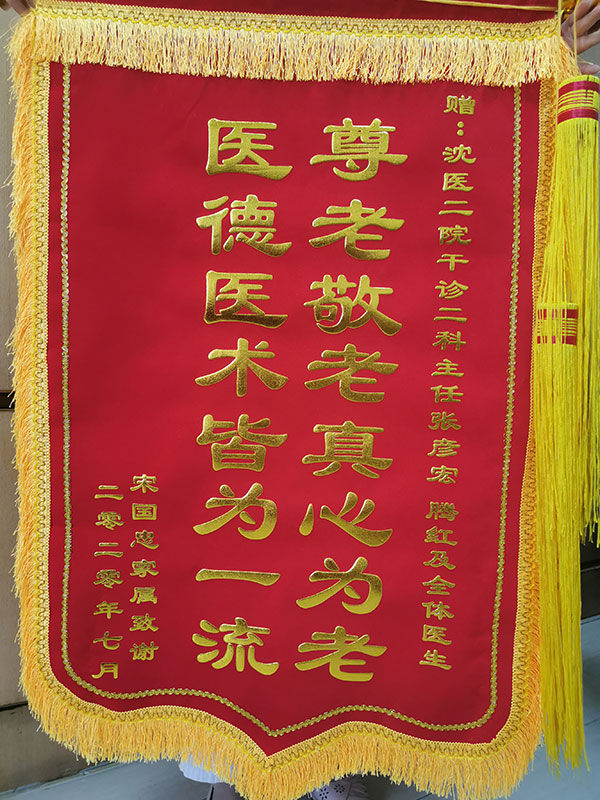 赠：沈医二院干诊二科主任张彦宏 腾红及全体医生
尊老敬老真心为老
医德医术皆为一流
宋国忠家属致谢
二零二零年七月